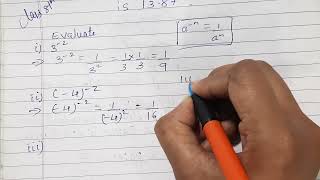 Class 8th
is 13.87
Evaluate
a⁻ⁿ = 1/aⁿ
i) 3⁻²
⇒ 3⁻² = 1/3² = 1/3 × 1/3 = 1/9
ii) (-4)⁻²
⇒ (-4)⁻² = 1/(-4)² = 1/16
iii)